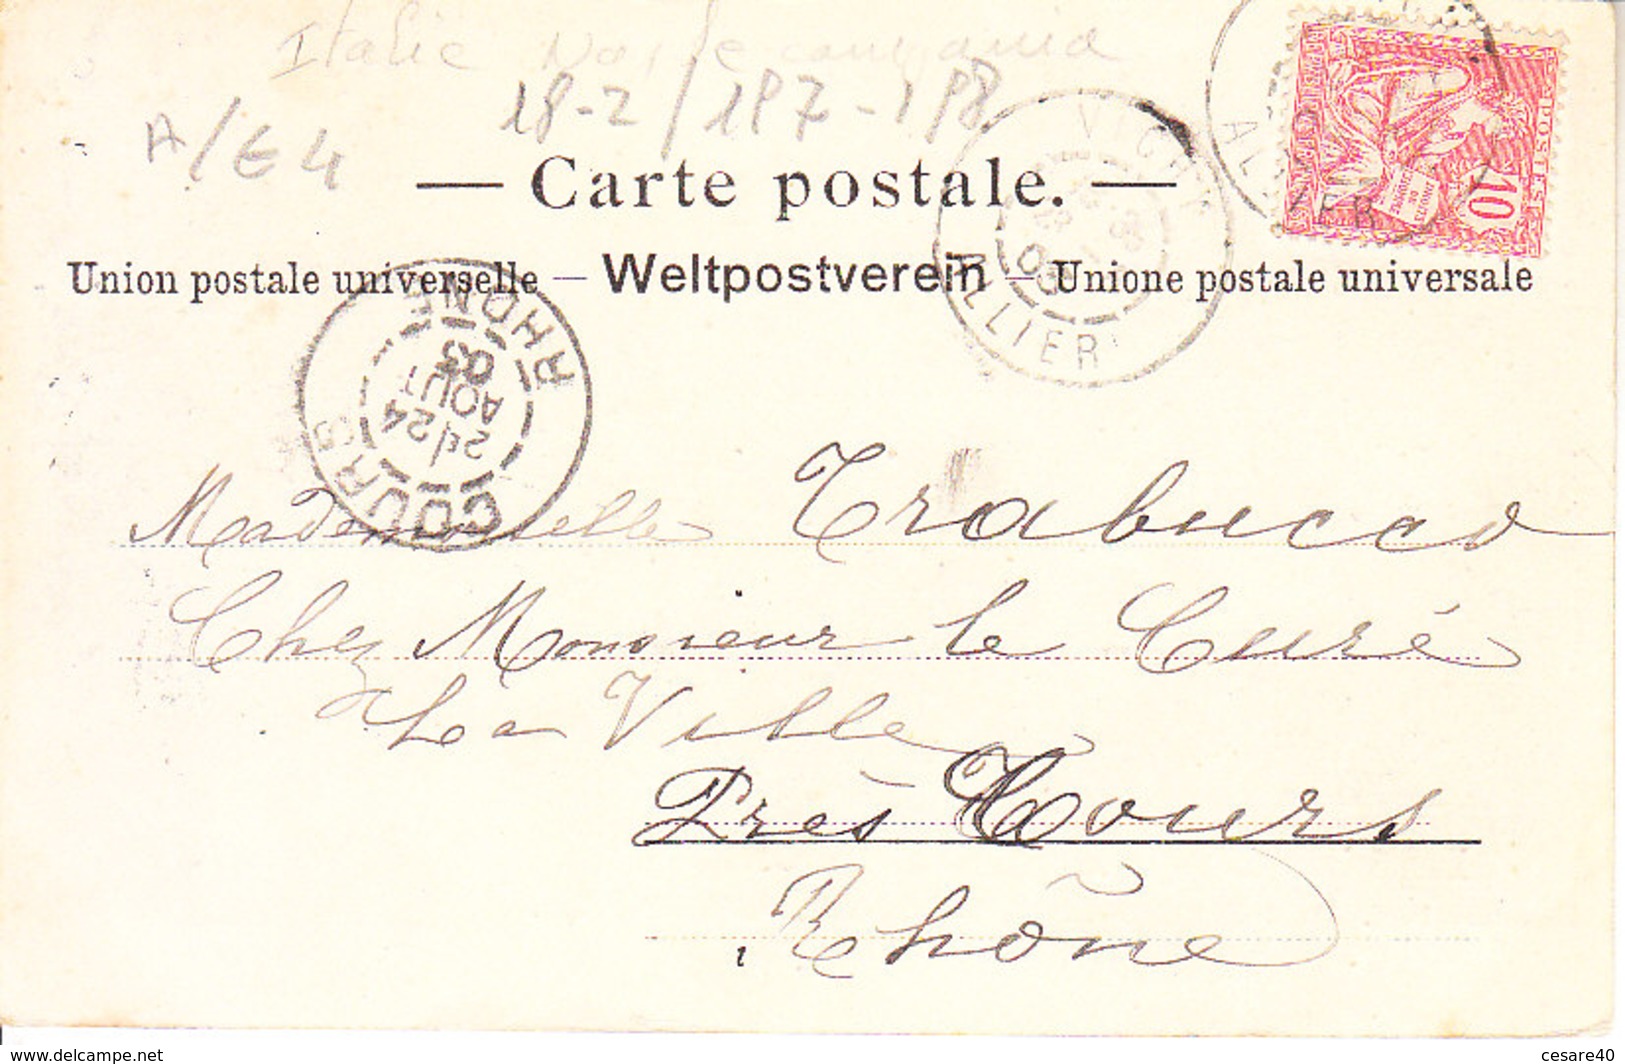 Italie
18-2/187-188
A/E4
— Carte postale. —
Union postale universelle — Weltpostverein — Unione postale universale
VICHY
ALLIER
03
ALLIER
POSTES
10
RHONE
COURS
24
AOUT
03
Mademoiselle Trabucco
Chez Monsieur le Curé
La Ville
Près Cours
Rhône
www.delcampe.net
cesare40